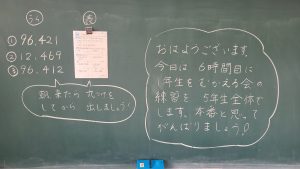 うら
表
① 96.421
② 12.469
③ 96.412
朝、来たら 丸つけを
してから 出しましょう！
おはようございます。
今日は 6時間目に
1年生をむかえる会の
練習を 5年生全体で
します。本番と思って
がんばりましょう！